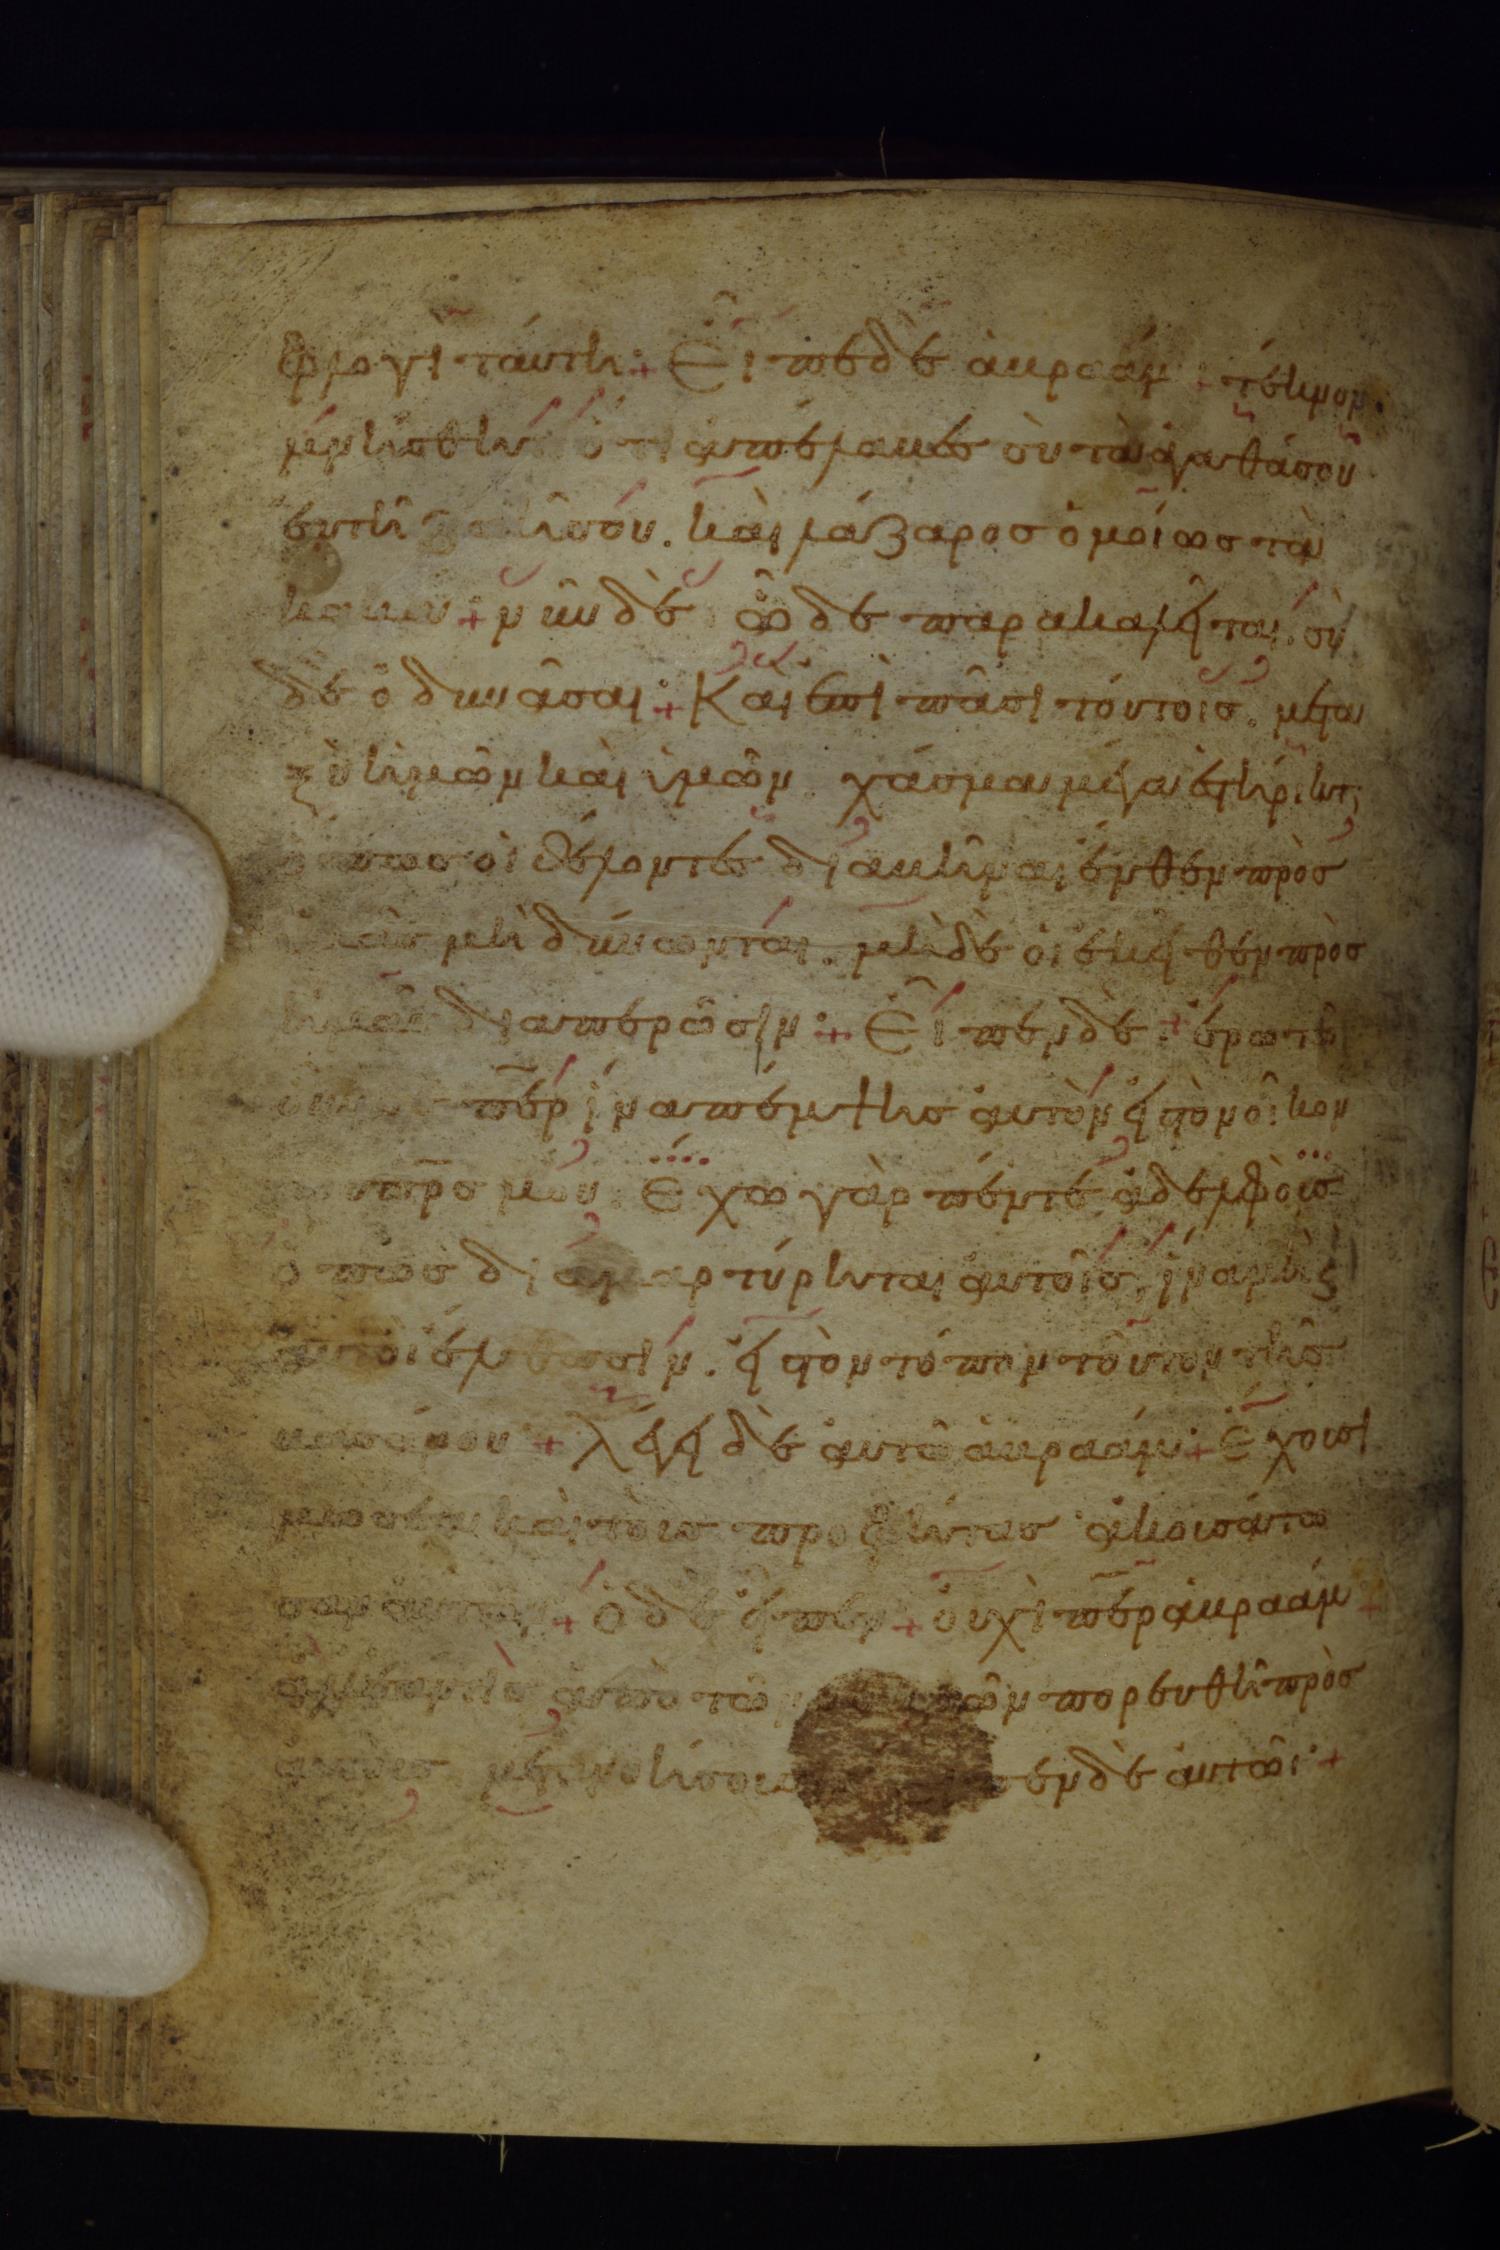 φλογὶ ταύτη· Εἶπε δὲ ἀβραάμ τέκνον.
μνήσθητι ὅτι ἀπέλαβες σὺ τὰ ἀγαθά σου
ἐν τῆ ζωῆ σου. καὶ λάζαρος ὁμοίως τὰ
κακά· νῦν δὲ ὧδε παρακαλεῖται. σὺ
δὲ ὀδυνᾶσαι· Καὶ ἐπὶ πᾶσι τούτοις. μετα
ξὺ ἡμῶν καὶ ὑμῶν χάσμα μέγα ἐστήρικτ
ὅπως οἱ θέλοντες διαβῆναι ἔνθεν πρὸς
ὑμᾶς μὴ δύνωνται. μὴ δὲ οἱ ἐκεῖθεν πρὸς
ἡμᾶς διαπερῶσιν· Εἶπεν δὲ· ἐρωτῶ
οὖν σε περ ἵνα πέμψης αὐτὸν εἰς τὸν οἶκον
τοῦ πρς μου. Ἔχω γὰρ πέντε ἀδελφοὺς
ὅπως διαμαρτύρηται αὐτοῖς. ἵνα μὴ κ
αὐτοὶ ἔλθωσιν. εἰς τὸν τόπον τοῦτον τῆς
βασάνου· λέγει δὲ αὐτῶ ἀβραάμ· Ἔχουσι
μωσέα καὶ τοὺς προφήτας ἀκουσάτω
σαν αὐτῶν· ὁ δὲ εἶπεν· οὐχὶ περ ἀβραάμ
ἀλλ' ἐάν τις ἀπὸ τῶν νεκρῶν πορευθῆ πρὸς
αὐτοὺς μετανοήσουσιν εἶπεν δὲ αὐτῶ·